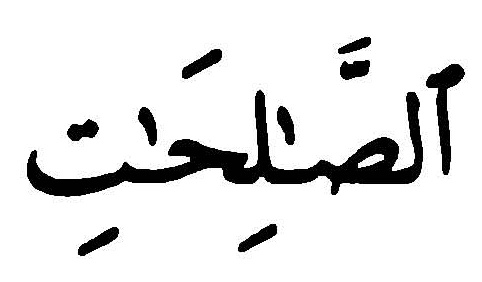 ٱلصَّـٰلِحَـٰتِ